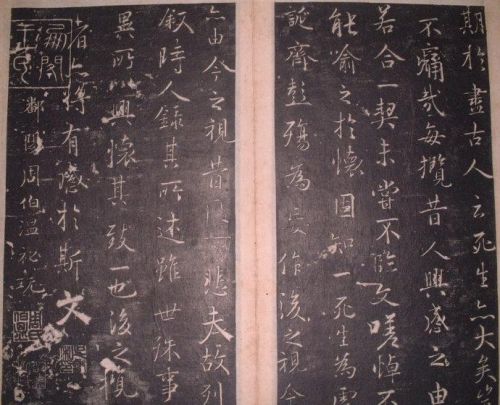 期於盡古人云死生亦大矣豈
不痛哉每攬昔人興感之由
若合一契未嘗不臨文嗟悼不
能喻之於懷固知一死生為虛
誕齊彭殤為妄作後之視今
亦由今之視昔悲夫故列
叙時人錄其所述雖世殊事
異所以興懷其致一也後之攬
者亦將有感於斯文
鄱陽周伯溫祕玩